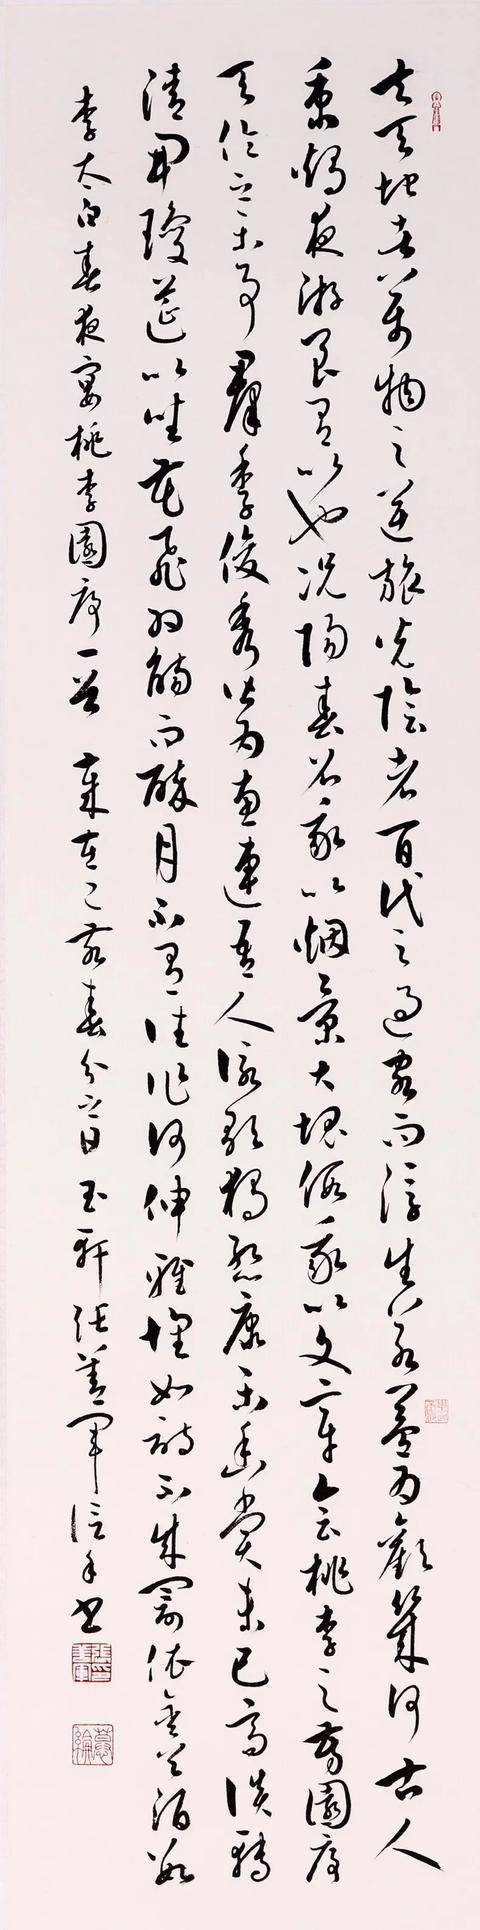 夫天地者萬物之逆旅光陰者百代之過客而浮生若夢為歡幾何古人
秉燭夜游良有以也況陽春召我以烟景大塊假我以文章會桃李之芳園序
天倫之樂事羣季俊秀皆為惠連吾人詠歌獨慚康樂幽賞未已高談轉
清開瓊筵以坐花飛羽觴而醉月不有佳作何伸雅懷如詩不成罰依金谷酒數
李太白春夜宴桃李園序一首 歲在己亥春分之日 玉軒張善軍信手書